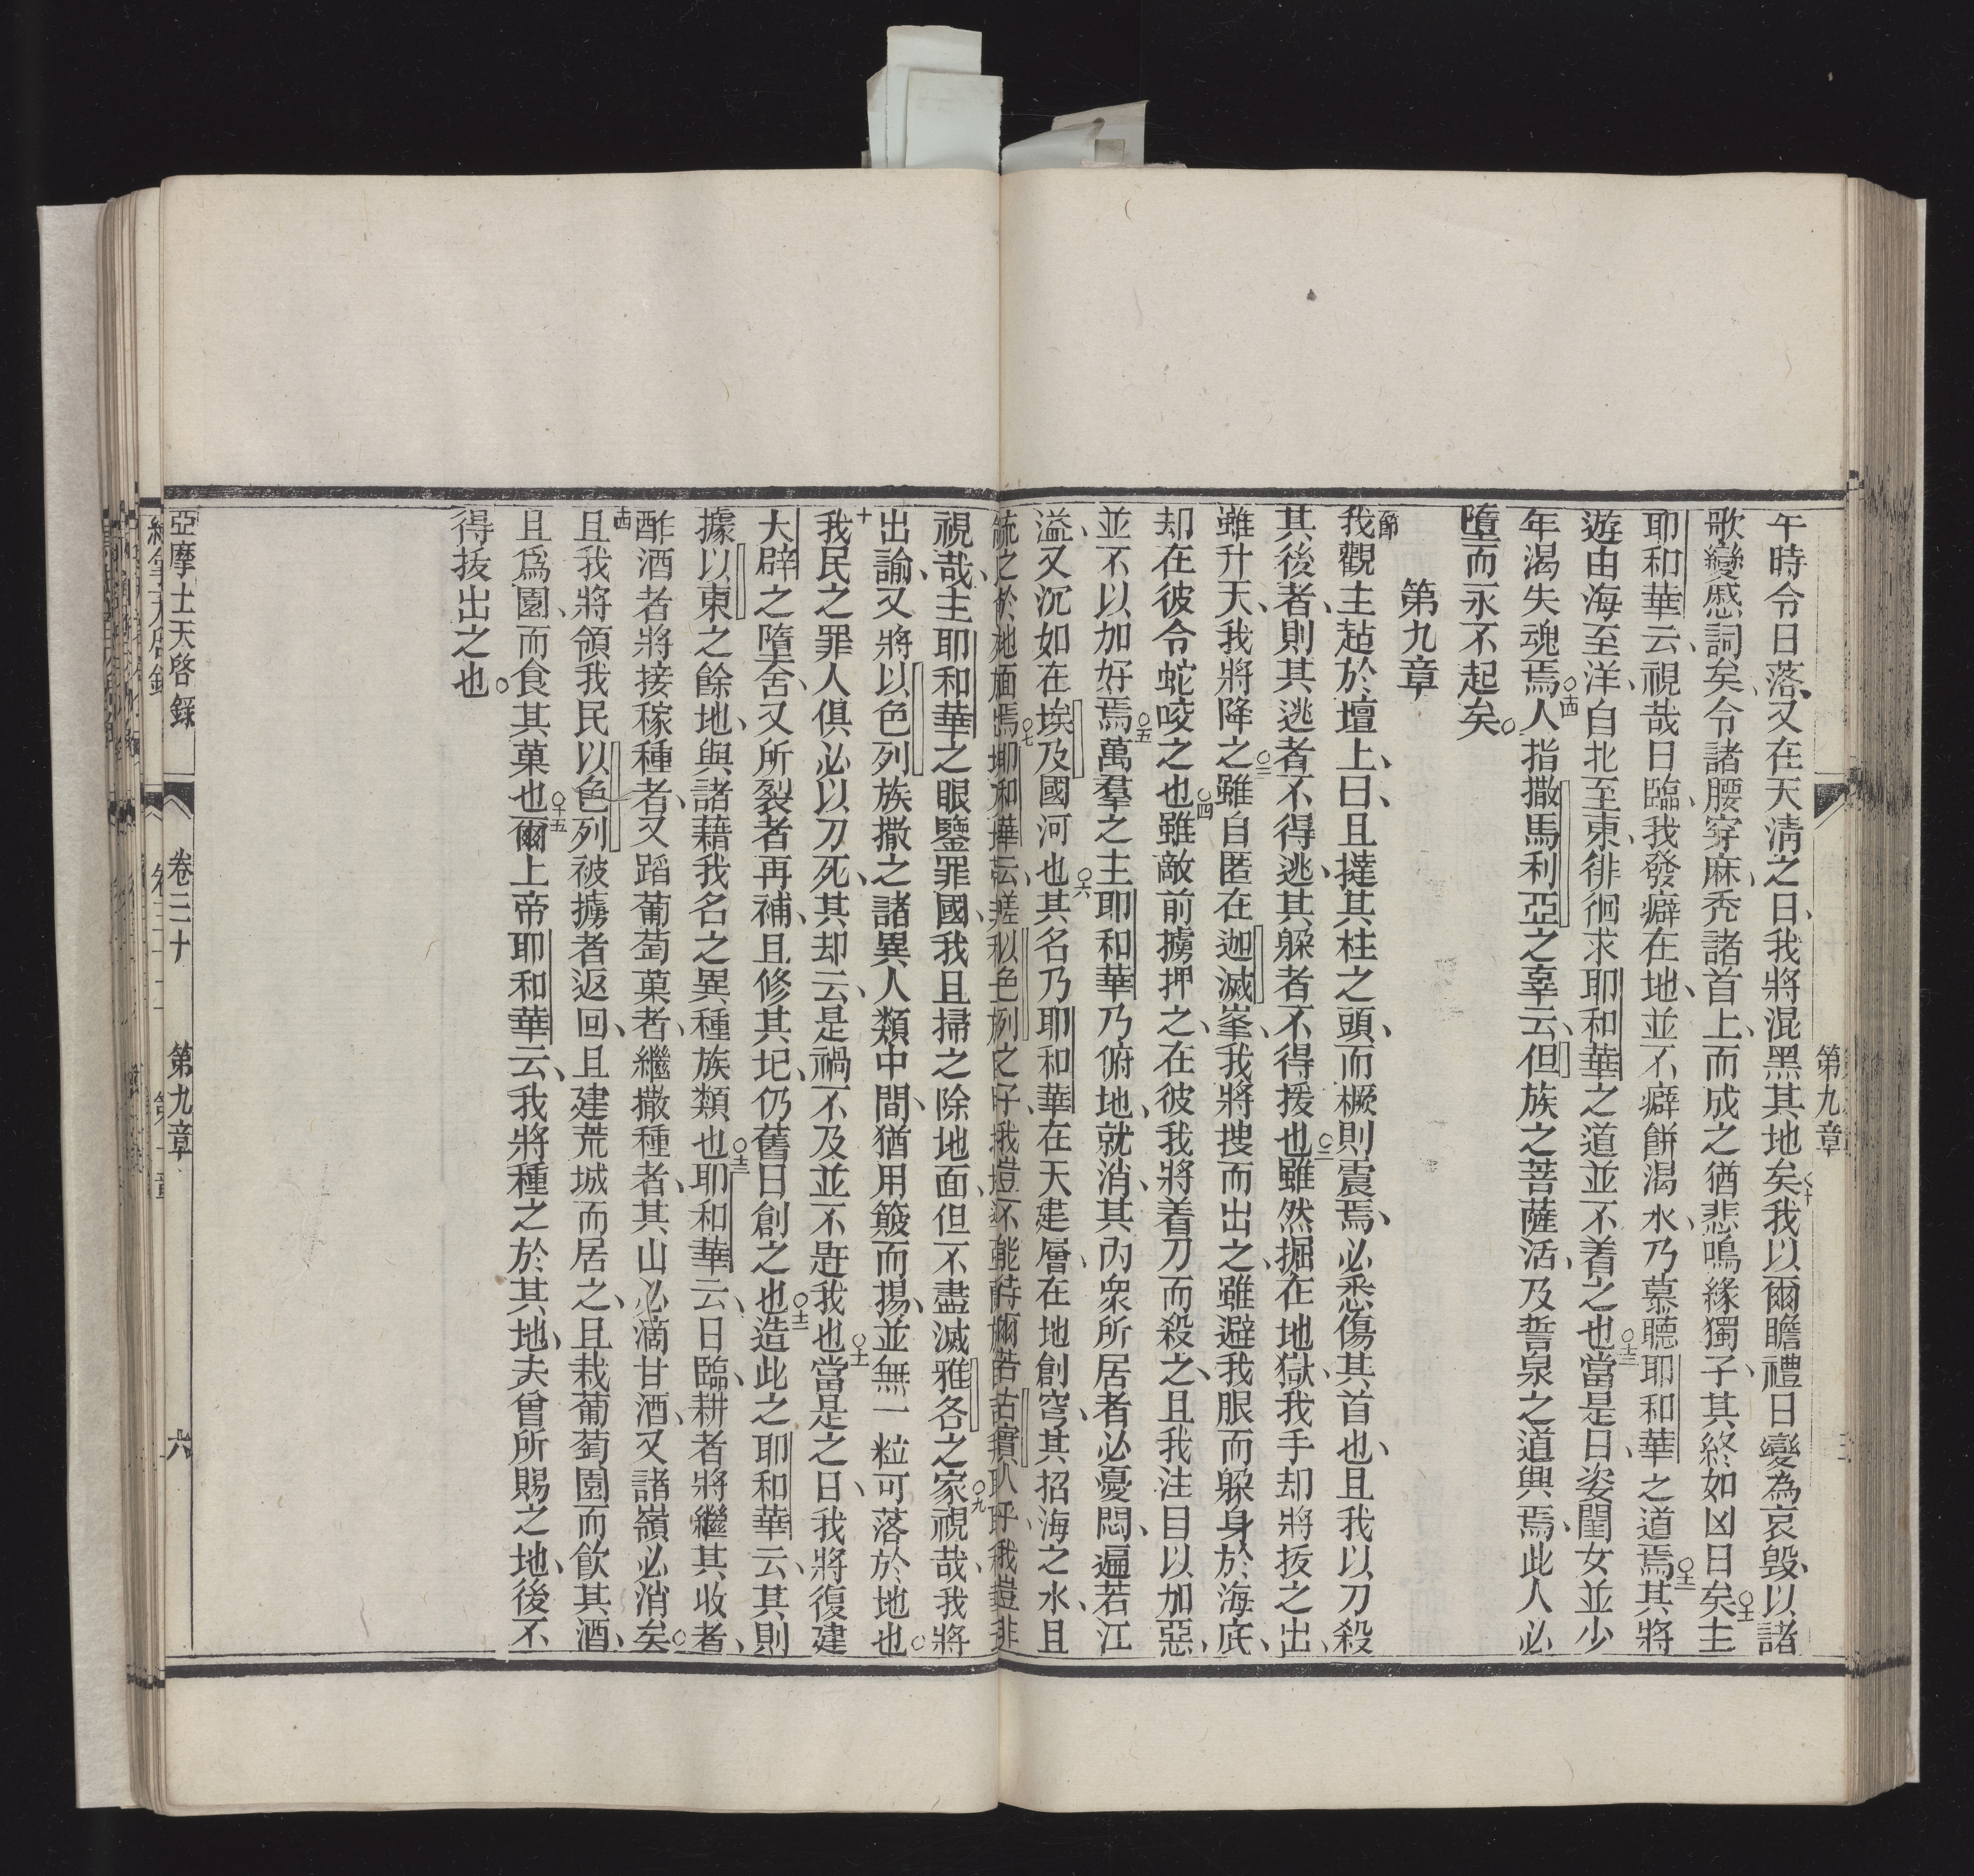 第九章
午時令日落、又在天淸之日、我將混黑其地矣○十我以爾瞻禮日變為哀毀、以諸
歌變慼詞矣、令諸腰穿麻、禿諸首上、而成之猶悲鳴緣獨子、其終如凶日矣○十一主
耶和華云、視哉日臨、我發癖在地、並不癖餅渴水、乃慕聽耶和華之道焉○十二其將
遊由海至洋、自北至東、徘徊求耶和華之道並不着之也○十三當是日、姿閨女並少
年渴失魂焉○十四人指撒馬利亞之辜云、但族之菩薩活、及誓泉之道與焉、此人必
墮而永不起矣○
第九章
節我觀主趈於壇上、曰、且撻其柱之頭、而橛則震焉、必悉傷其首也、且我以刀殺
其後者、則其逃者不得逃、其躲者不得援也○二雖然掘在地獄、我手却將拔之出、
雖升天、我將降之○三雖自匿在迦滅峯、我將搜而出之、雖避我眼而躲身於海底、
却在彼令蛇咬之也○四雖敵前擄押之、在彼我將着刀而殺之、且我注目以加惡、
並不以加好焉○五萬羣之主耶和華乃俯地、就消、其內衆所居者必憂悶、遍若江
溢、又沉如在埃及國河也○六其名乃耶和華在天建層、在地創穹、其招海之水、且
視哉、主耶和華之眼鑒罪國、我且掃之除地面、但不盡滅雅各之家○九視哉、我將
出諭、又將以色列族撒之諸異人類中間、猶用簸而揚、並無一粒可落於地也○
十我民之罪人俱必以刀死、其却云、是禍不及並不趕我也○十一當是之日、我將復建
大辟之墮舍、又所裂者再補、且修其圮、仍舊日創之也○十二造此之耶和華云、其則
據以東之餘地、與諸藉我名之異種族類也○十三耶和華云、日臨、耕者將繼其收者、
酢酒者將接稼種者、又蹈葡萄菓者、繼撒種者、其山必滴甘酒、又諸嶺必消矣○
十四且我將領我民以色列被擄者返回、且建荒城而居之、且栽葡萄園而飮其酒、
且爲園、而食其菓也○十五爾上帝耶和華云、我將種之於其地、夫曾所賜之地、後不
得拔出之也○
亞摩士天啓錄 卷三十 第九章 六